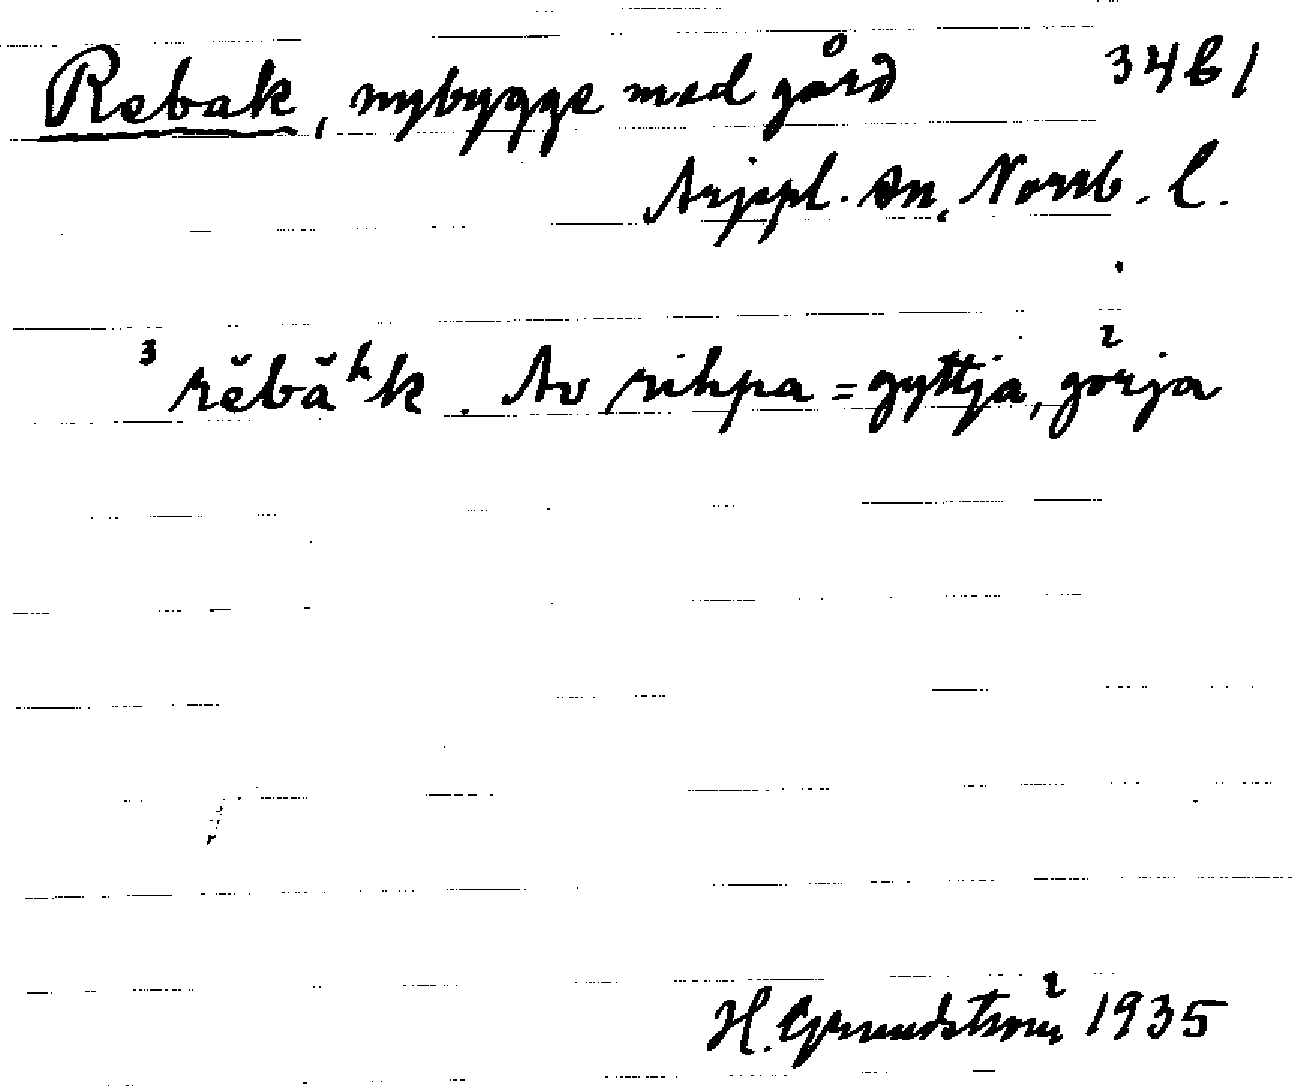 Rebak, nybygge med gård 34b1
Arjepl. sn, Norrb. l.
³ rĕbăʰk. Av rihpa = gyttja, görja
H. Grundström 1935